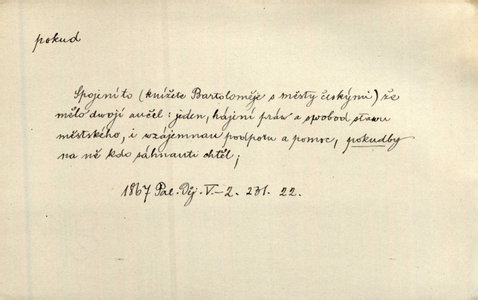 pokud
Spojení to (knížete Bartoloměje s městy českými) že
mělo dvojí aučel: jeden, hájení práv a svobod stavu
městského, i vzájemnau podporu a pomoc, pokudby
na ně kdo sáhnauti chtěl;
1867 Pal. Děj. V-2. 231. 22.